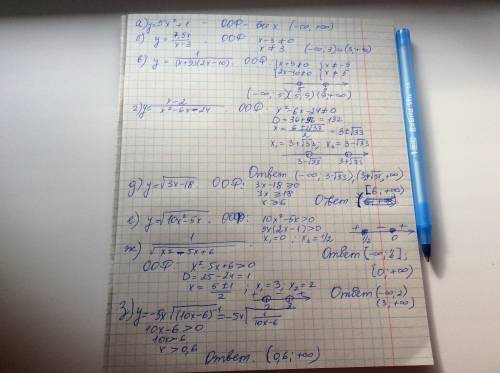 а) y=5x²+1 - ООФ - все x (-∞; +∞)
б) y = 7,5x/(x-3) ООФ x-3≠0
x ≠ 3 (-∞; 3)∪(3; +∞)
в) y = 1/((x+9)(2x-10)) ООФ {x+9≠0 {x≠-9
{2x-10≠0 {x≠5
г) y = (x-2)/(x²-6x-24) ООФ: x²-6x-24≠0
D=36+96=132
x = (6±√33)/2 = 3±√33
x₁=3+√33; x₂=3-√33
3-√33 3+√33
Ответ (-∞; 3-√33), (3+√33, +∞)
д) y=√(3x-18) ООФ: 3x-18≥0
3x≥18
x≥6 Ответ [6; +∞)
е) y=√(10x²-5x) ООФ: 10x²-5x>0
5x(2x-1)>0
x₁=0; x₂=1/2
ж) 1/√(x²-5x+6)
ООФ: x²-5x+6>0
D=25-24=1
x = (5±1)/2; x₁=3, x₂=2
[0; +∞)
Ответ (-∞; 2)
(3; +∞)
з) y=-5x√((10x-6)⁻¹)=-5x√(1/(10x-6))
10x-6>0
10x>6
x>0,6
Ответ: (0,6; +∞)